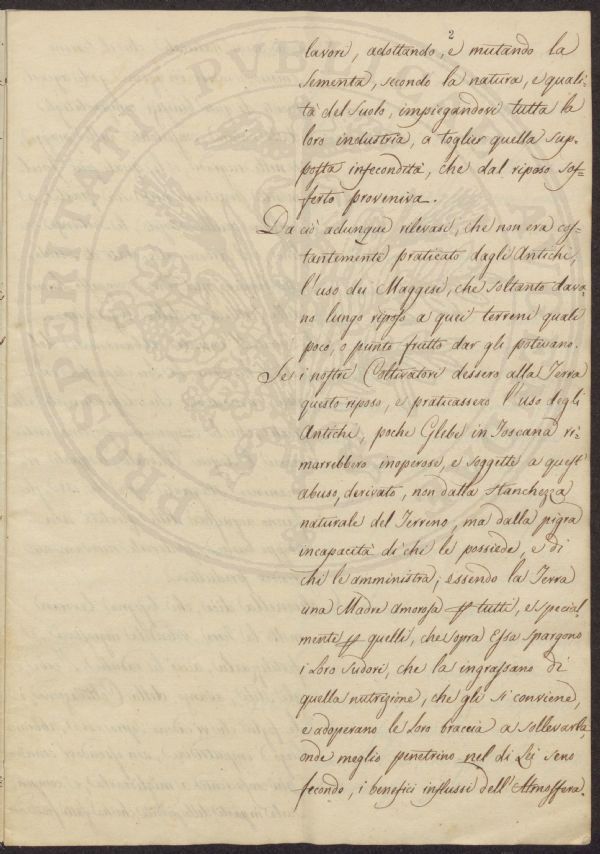 2
lavori, adottando, e mutando la
sementa, secondo la natura, e quali=
tà del suolo, impiegandovi tutta la
loro industria, a toglier quella sup=
posta infecondità, che dal riposo sof=
ferto proveniva.
Da ciò adunque rilevasi, che non era co=
stantemente praticato dagli Antichi,
l'uso dei Maggesi, che soltanto dava=
no lungo riposo a quei terreni quali
poco, o punto frutto dar gli potevano.
Se i nostri Coltivatori dessero alla Terra
questo riposo, e praticassero l'uso degli
Antichi, poche Glebe in Toscana ri=
marrebbero inoperose, e soggette a quest'
abuso, derivato, non dalla stanchezza
naturale del Terreno, ma dalla pigra
incapacità di chi le possiede, e di
chi le amministra; essendo la Terra
una Madre amorosa p tutti, e special=
mente p quelli, che sopra Essa spargono
i Loro sudori, che la ingrassano di
quella nutrizione, che gli si conviene,
e adoperano le loro braccia a sollevarla,
onde meglio penetrino nel di Lei seno
fecondo, i benefici influssi dell'Atmosfera.
PROSPERITATI PVBLICAE